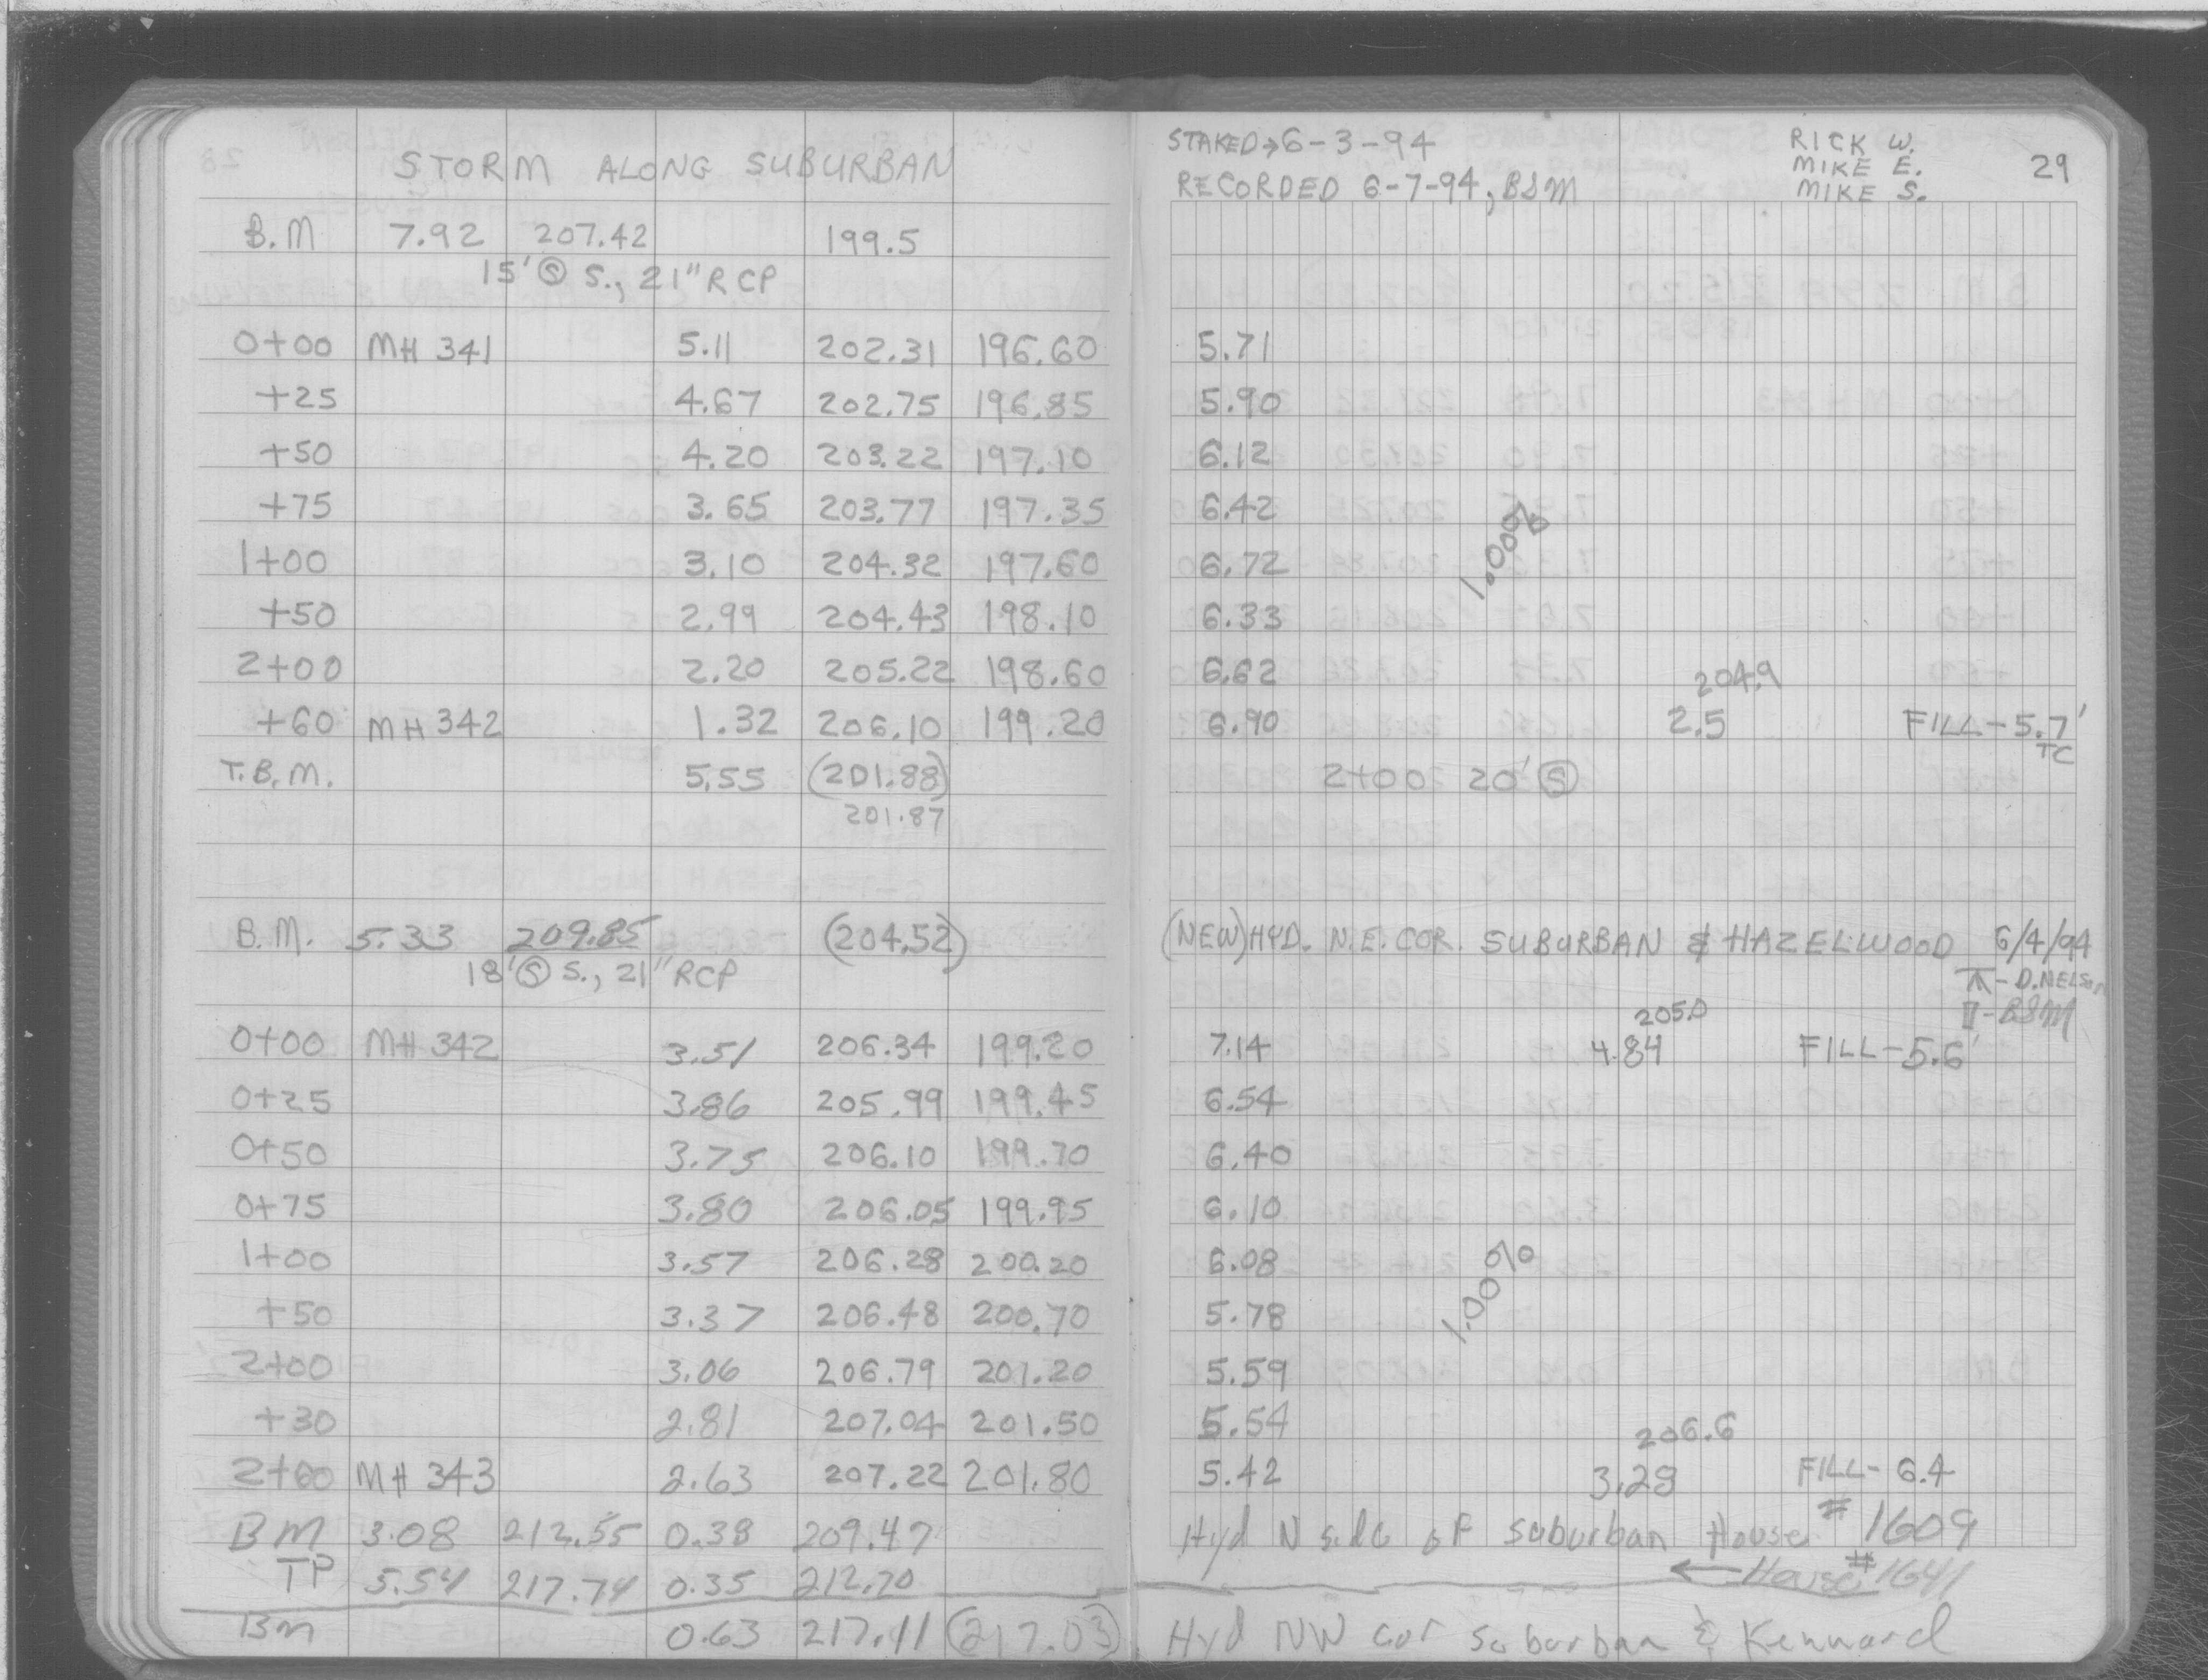 STORM ALONG SUBURBAN
B.M 7.92 207.42 199.5
15' Ⓢ S., 21" RCP
0+00 MH 341 5.11 202.31 196.60
+25 4.67 202.75 196.85
+50 4.20 203.22 197.10
+75 3.65 203.77 197.35
1+00 3.10 204.32 197.60
+50 2.99 204.43 198.10
2+00 2.20 205.22 198.60
+60 MH 342 1.32 206.10 199.20
T.B.M. 5.55 (201.88)
201.87
B.M. 5.33 209.85 (204.52)
18' Ⓢ S., 21" RCP
0+00 MH 342 3.51 206.34 199.20
0+25 3.86 205.99 199.45
0+50 3.75 206.10 199.70
0+75 3.80 206.05 199.95
1+00 3.57 206.28 200.20
+50 3.37 206.48 200.70
2+00 3.06 206.79 201.20
+30 2.81 207.04 201.50
2+60 MH 343 2.63 207.22 201.80
BM 3.08 212.55 0.38 209.47
TP 5.54 217.74 0.35 212.20
BM 0.63 217.11 (217.03)
STAKED→6-3-94
RECORDED 6-7-94, BSM
RICK W.
MIKE E.
MIKE S.
29
5.71
5.90
6.12
6.42
1.00%
6.72
6.33
6.62
204.9
6.90 2.5 FILL-5.7'
TC
2+00 20' Ⓢ
(NEW) HYD. N.E. COR. SUBURBAN & HAZELWOOD 6/4/94
⊼-D.NELSON
205.0
-BSM
7.14 4.84 FILL-5.6'
6.54
6.40
6.10
6.08
1.00%
5.78
5.59
5.54
206.6
5.42 3.28 FILL- 6.4
Hyd N side of Suburban House #1609
← House #1641
Hyd NW cor Suburban & Kennard